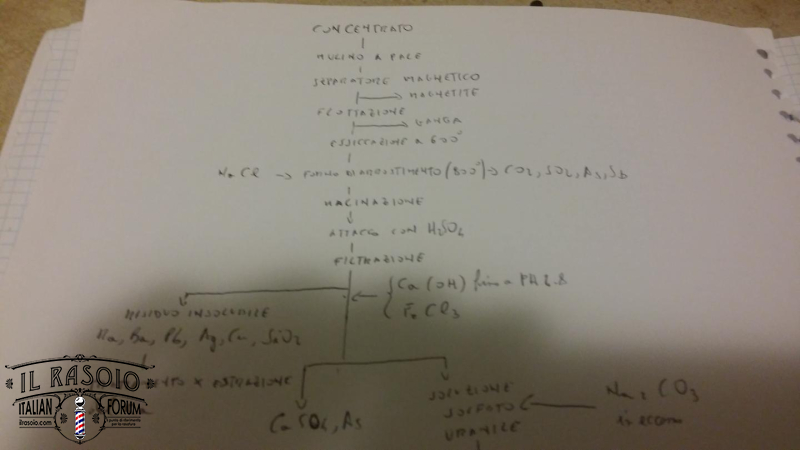 CONCENTRATO
MULINO A PALE
SEPARATORE MAGNETICO
MAGNETITE
FLOTTAZIONE
GANGA
ESSICCAZIONE A 600°
NaCl → FORNO DI ARROSTIMENTO (800°) → CO2, SO2, As, Sb
MACINAZIONE
ATTACCO CON H2SO4
FILTRAZIONE
Ca(OH) fino a PH 2.8
FeCl3
RESIDUO INSOLUBILE
Ra, Ba, Pb, Ag, Cu, SiO2
X ESTRAZIONE
CaSO4, As
SOLUZIONE
SOLFATO
URANILE
Na2CO3
in eccesso
IL RASOIO
ITALIAN FORUM
ilrasoio.com